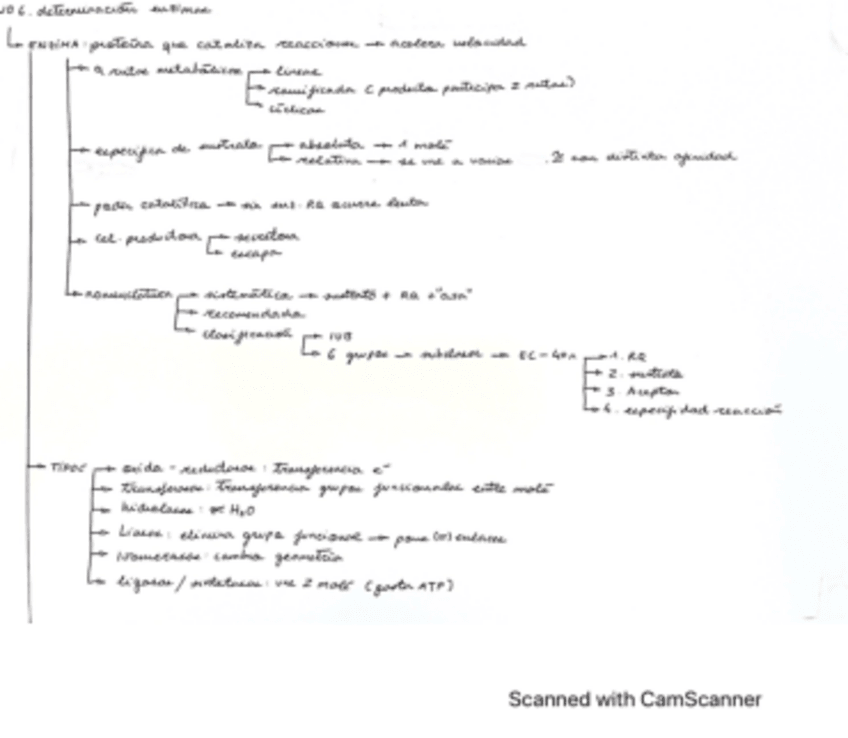 determinación enzimas
ENZIMA: proteína que cataliza reacciones → acelera velocidad
rutas metabólicas → lineal
→ ramificada (producto participa 2 rutas)
→ cíclicas
específica de sustrato → absoluta → 1 molé
→ relativa → se une a varios con distinta afinidad
poder catalítico → sin enz. RQ ocurre lenta
cel. productora → secretora
→ escape
nomenclatura → sistemática → sustrato + RQ + "asa"
→ recomendada
→ clasificación → IUB
→ 6 grupos → subclases → EC-
1. RQ
2. 
3. Aceptor
4. especifidad reacción
TIPOS → oxido-reductasas: Transferencia e⁻
→ transferasas: Transferencia grupos funcionales entre molé
→ hidrolasas: H₂O
→ Liasas: elimina grupo funcional → pone (=) enlaces
→ Isomerasas: cambia geometría
→ ligasas / sintetasas: une 2 molé (gasta ATP)
Scanned with CamScanner